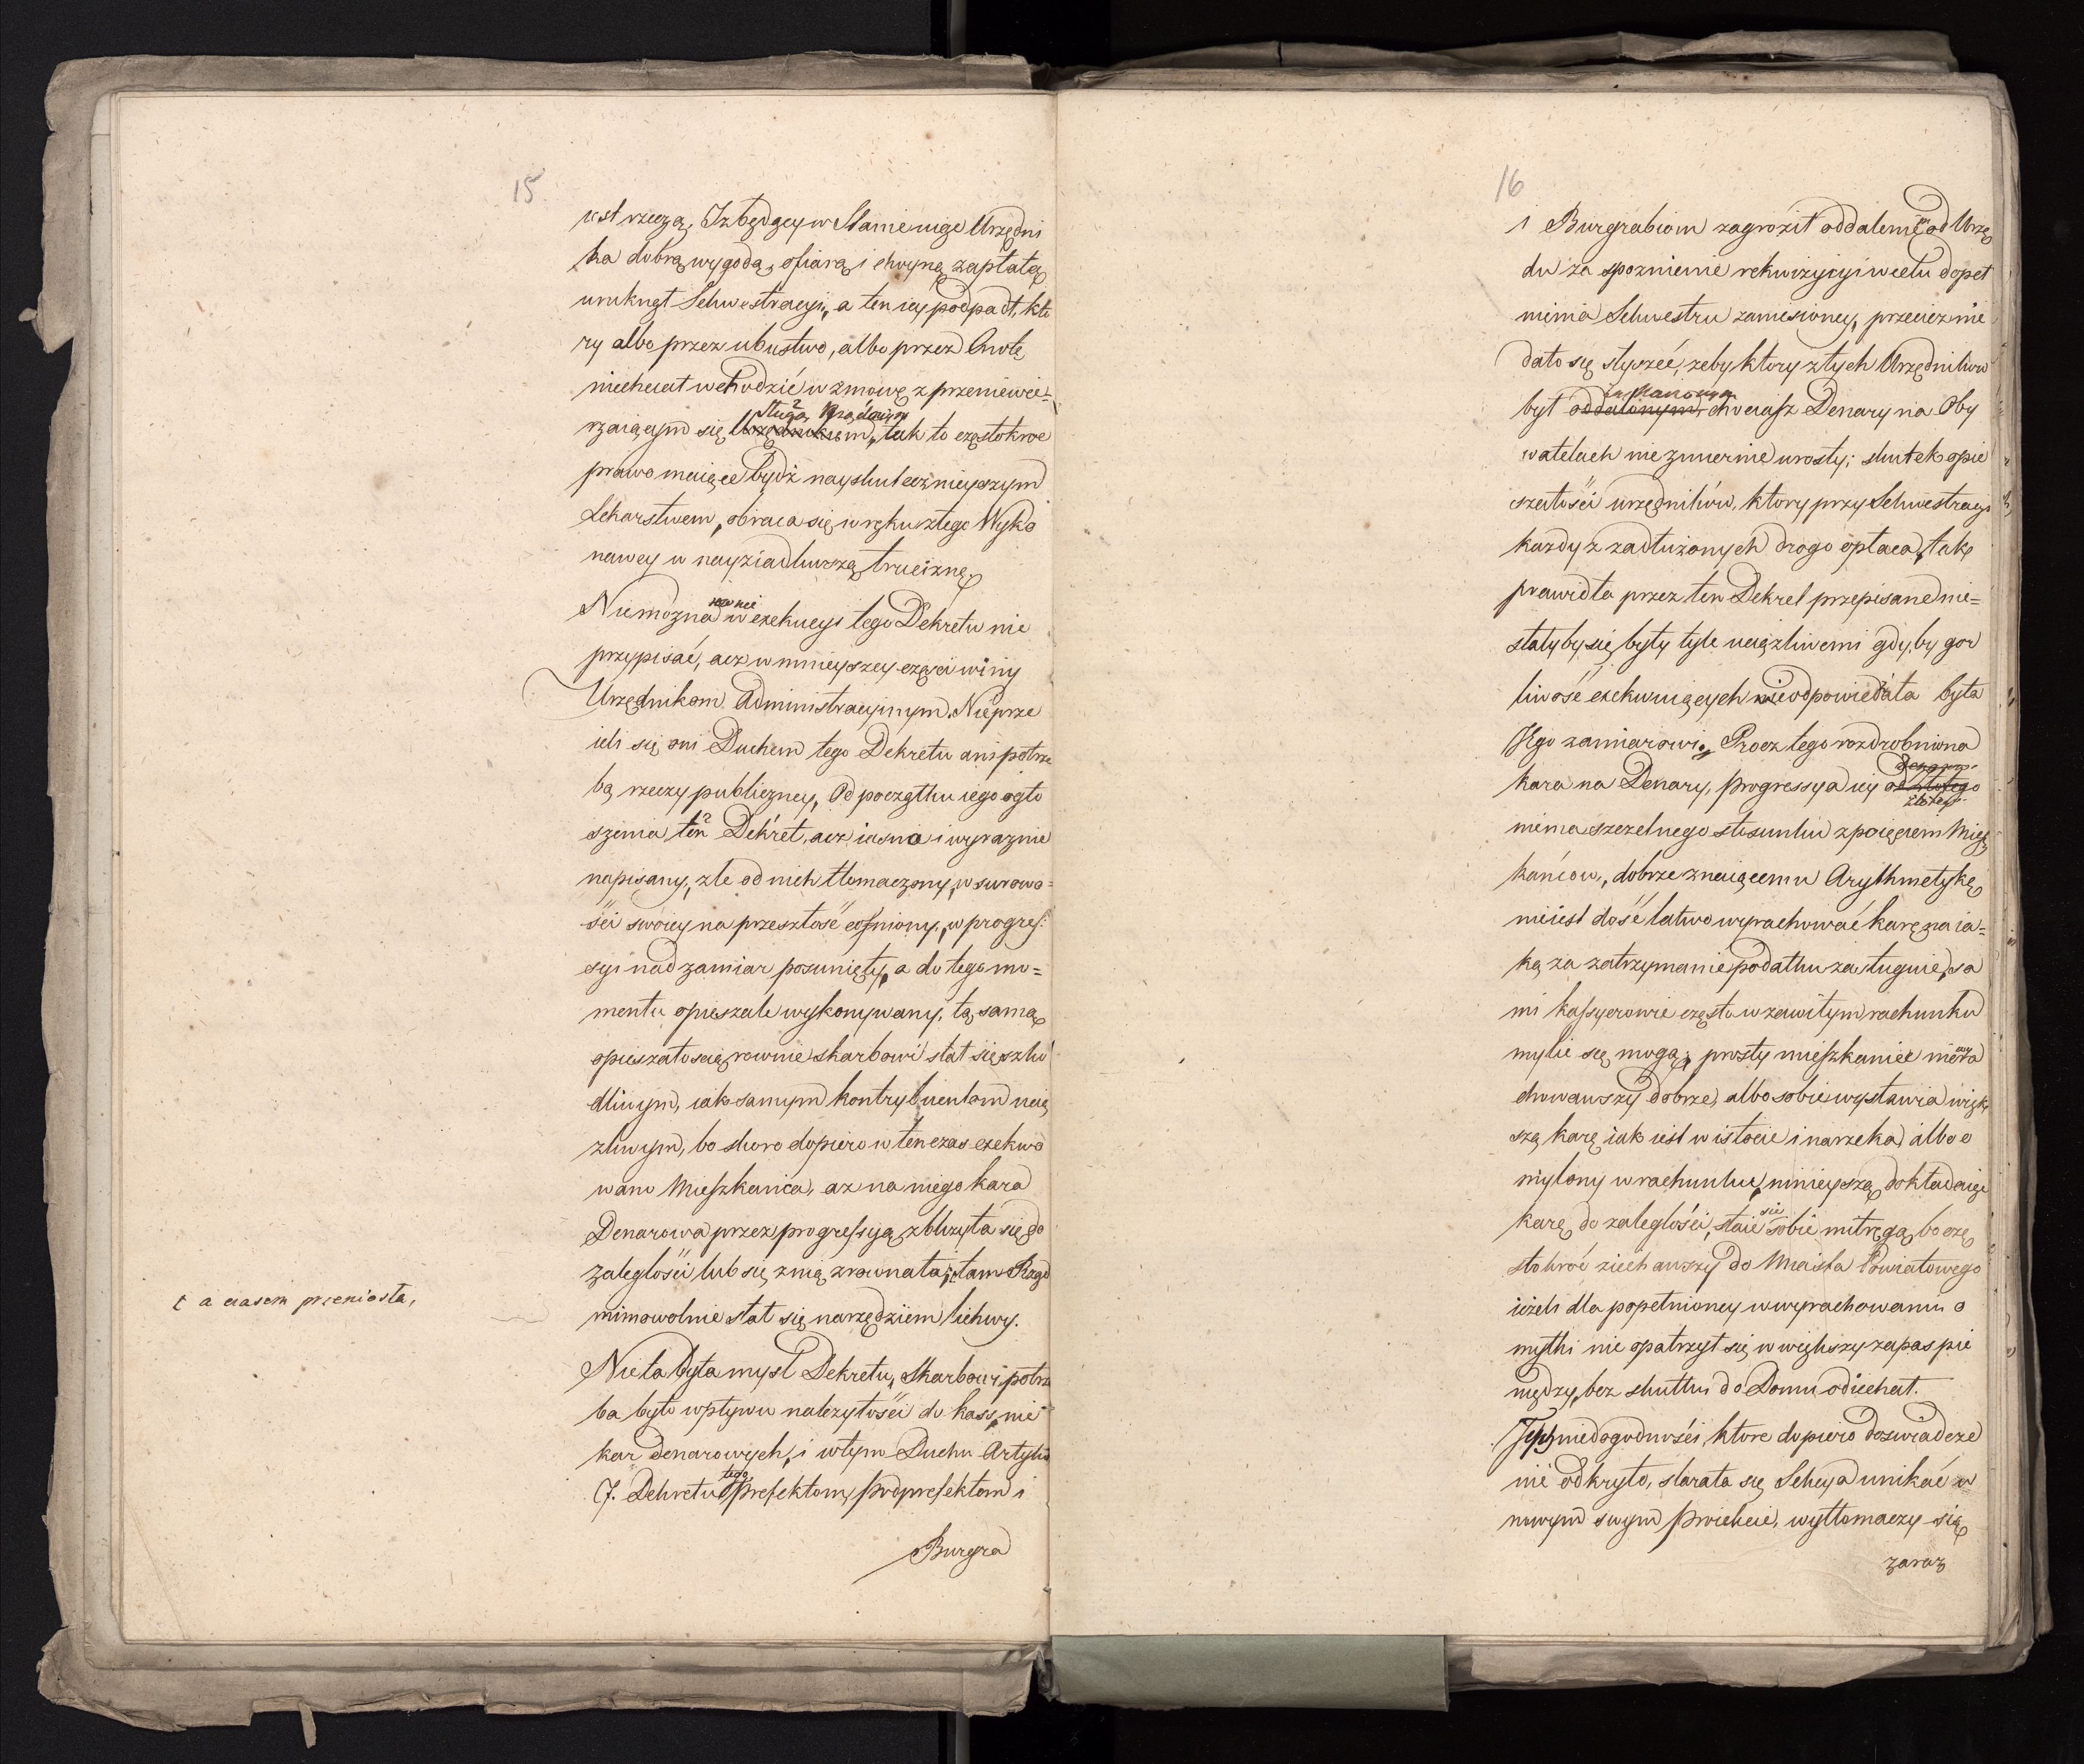 15
iest rzeczą, Iz będący w Stanie ująć Urzędni
ka dobrą wygodą, ofiarą i choyną zapłatą
uniknął Sekwestracyi, a ten iey podpadł, któ
ry albo przez ubustwo, albo przez Cnotę
niechciał wchodzić w zmowę z przeniewie=
rzaiącym się Sługą Rządowym, tak to częstokroć
prawo maiące bydź nayskutecznieyszym
Lekarstwem, obraca się w ręku złego Wyko
nawcy w nayziadliwszą truciznę,
Niemożna w exekucyi tego Dekretu nie
przypisać, acz w mnieyszey części winy
Urzędnikom Administracyinym. Nieprze
ieli się oni Duchem tego Dekretu ani potrze
bą rzeczy publiczney, Od początku iego ogło
szenia ten Dekret, acz iasno i wyraznie
napisany, zle od nich tłomaczony, w surowo=
ści swoiey na przeszłość cofniony, w progres=
syi nad zamiar posunięty, a do tego mo=
mentu opieszale wykonywany, tą samą
opieszałością rownie skarbowi stał się szko
dliwym, iak samym kontrybuentom ucią
zliwym, bo skoro dopiero w ten czas exekwo
wano Mieszkańca, az na niego kara
Denarowa przez progressyą zbliżyła się do
zaległości lub się z nią zrownała, tam Rząd
t a czasem przeniosła,
mimowolnie stał się narzędziem lichwy.
Nie ta była mysl Dekretu, Skarbowi potrze
ba było wpływu należytości do kass, nie
kar denarowych, i w tym Duchu Artykuł
7. Dekretu tego Prefektom, Podprefektom i
Burgra
16
i Burgrabiom zagroził oddaleniem od Urzę
du za spoznienie rekwizycyi w celu dopeł
nienia Sekwestru zaniesioney, przecież nie
dało się słyszeć, zeby ktory z tych Urzędnikow
był oddalonym, chociasz Denary na Oby
watelach niezmiernie urosły; skutek opie
szałości urzędników, ktory przy Sekwestracyi
kazdy z zadłużonych drogo opłaca, tak
prawidła przez ten Dekret przepisane nie=
stałyby się były tyle uciązliwemi gdyby gor
liwość exekwuiących odpowiedała była
Jego zamiarowi, Procz tego rozdrobniona
kara na Denary, progressya iey od złotego
niema szczelnego stosunku z poięciem Miesz
kańcow, dobrze znaiącemu Arythmetykę
nieiest dość łatwo wyrachować karę na ia=
ką za zatrzymanie podatku zasługuie, sa
mi kassyerowie często w zawiłym rachunku
mylić się mogą, prosty mieszkaniec niewyra
chowawszy dobrze, albo sobie wystawia więk
szą karę iak iest w istocie i narzeka albo o
mylony w rachunku, mnieyszą dokładaiąc
karę do zaległości, staie się sobie mitręgą, bo czę
stokroć ziechawszy do Miasta Powiatowego
ieżeli dla popełnioney w wyrachowaniu o
myłki nie opatrzył się w większy zapas pie
niędzy, bez skutku do Domu odiechał.
Tych niedogodności, ktore dopiero doswiadcze
nie odkryło, starała się Sekcya unikać w
nowym swym Proiekcie, wytłomaczy się
zaraz